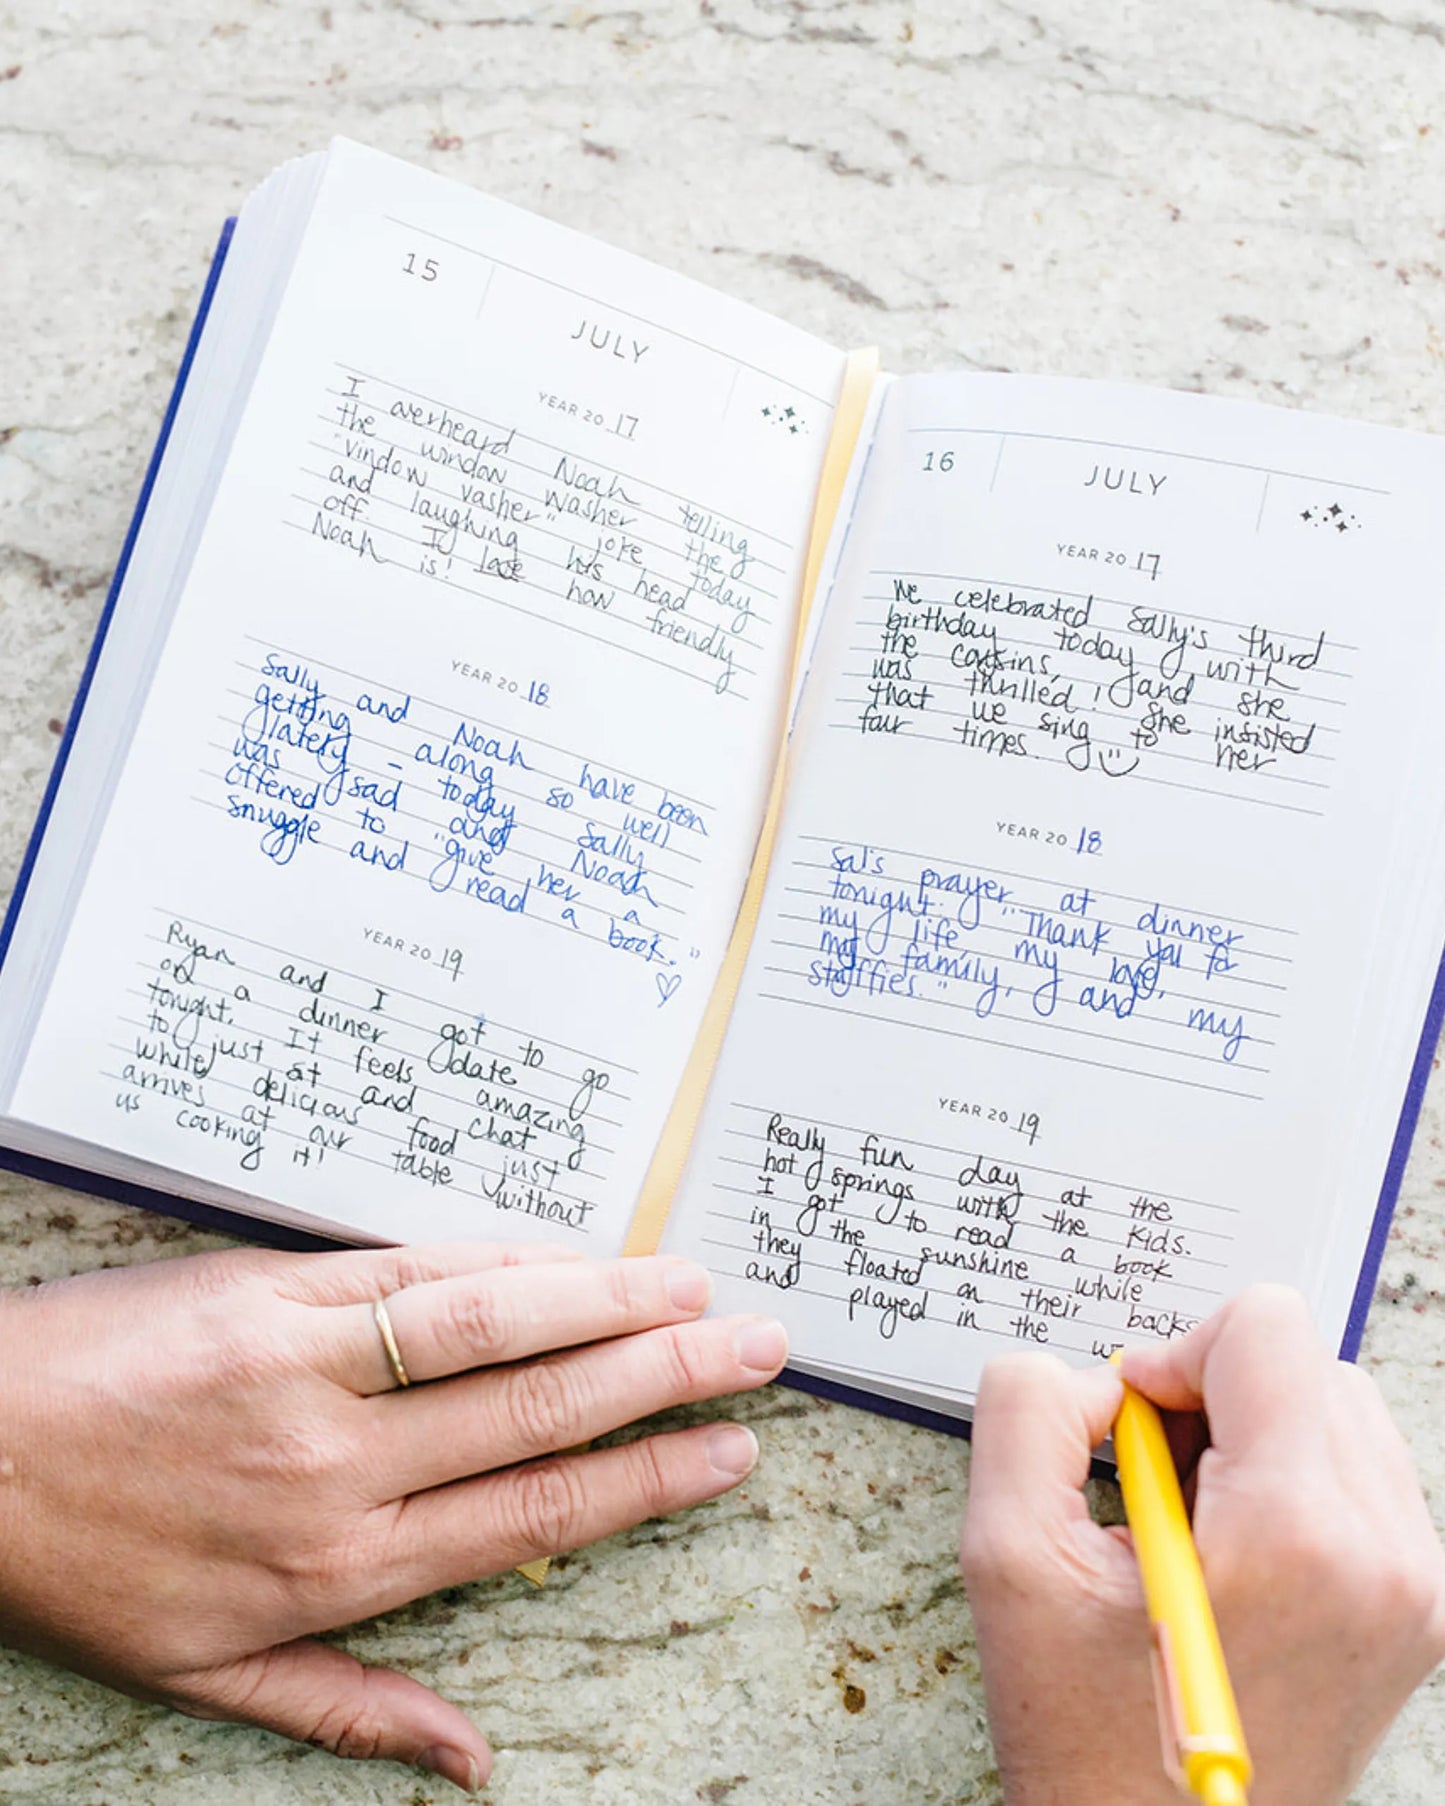 15
JULY
YEAR 20 17
I overheard Noah telling
the window washer the
"vindow vasher" joke today
and laughing his head
off. I love how friendly
Noah is!
YEAR 20 18
Sally and Noah have been
getting along so well
lately - today Sally
was sad and Noah
offered to "give her a
snuggle and read a book."
YEAR 20 19
Ryan and I got to go
on a dinner date
tonight. It feels amazing
to just sit and chat
while delicious food just
arrives at our table without
us cooking it!
16
JULY
YEAR 20 17
We celebrated Sally's third
birthday today with
the cousins, and she
was thrilled! She insisted
that we sing to her
four times.
YEAR 20 18
Sal's prayer at dinner
tonight. "Thank you for
my life, my love,
my family, and my
stuffies."
YEAR 20 19
Really fun day at the
hot springs with the kids.
I got to read a book
in the sunshine while
they floated on their backs
and played in the